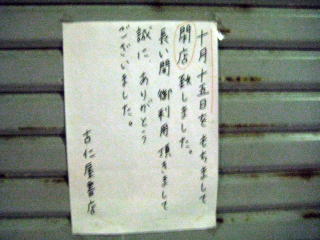 十月十五日をもちまして
閉店致しました。
長い間御利用頂きまして
誠にありがとう
ございました。
吉仁屋書店